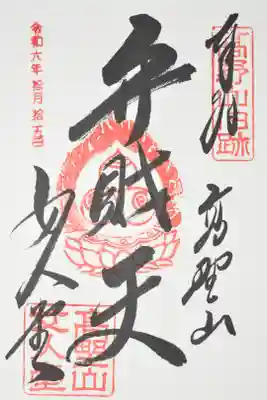 奉拝
高野山
弁財天
女人堂
令和六年拾月拾五日
高野山
女人堂